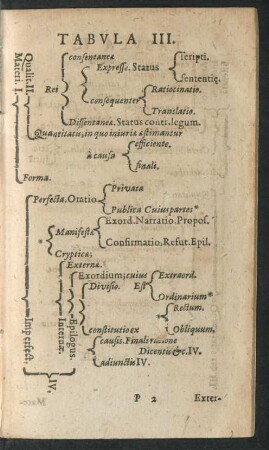 TABVLA III.
consentanea
scripti.
Expresse. Status
sententię.
Qualit. II.
Materi. I.
Rei
Ratiocinatio.
consequenter
Translatio.
Dissentanea. Status contr. legum.
Quantitatis, in quo iniuriæ æstimantur
efficiente.
à causa
finali.
Forma.
Privata
Perfecta. Oratio
Publica Cuius partes*
Exord. Narratio. Propos.
*
Manifesta
Confirmatio, Refut. Epil.
Cryptica;
Externæ.
Exordium; cuius
Extraord.
Divisio. Est
Ordinarium*
*
Rectum.
Imperfect.
Internæ.
Epilogus.
constitutio ex
Obliquum.
causis. Finali ratione
Dicentis &c. IV.
adiunctis IV.
IV,
P 2
Exter-